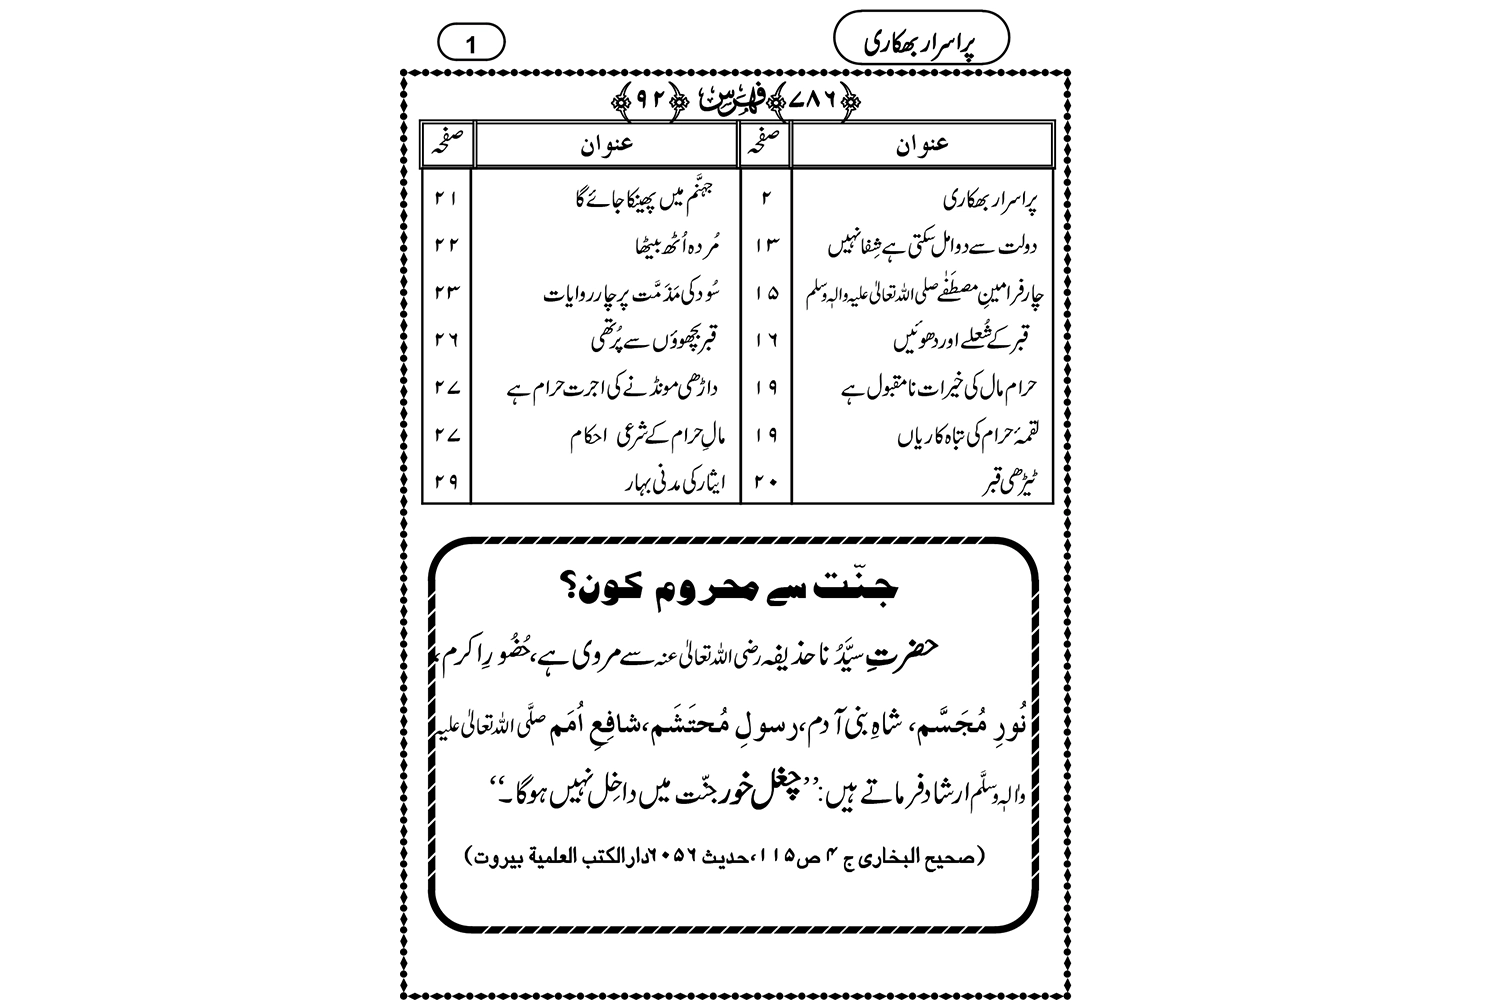 پراسرار بھکاری
1
﴿۷۸۶﴾ فہرس ﴿۹۲﴾
عنوان صفحہ عنوان صفحہ
پراسرار بھکاری ۲ جہنَّم میں پھینکا جائے گا ۲۱
دولت سے دوا مل سکتی ہے شِفا نہیں ۱۳ مُردہ اُٹھ بیٹھا ۲۲
چار فرامینِ مصطَفٰے صلی اللہ تعالیٰ علیہ والہٖ وسلم ۱۵ سُود کی مَذَمَّت پر چار روایات ۲۳
قبر کے شُعلے اور دھوئیں ۱۶ قبر بچھوؤں سے پُر تھی ۲۶
حرام مال کی خیرات نا مقبول ہے ۱۹ داڑھی مونڈنے کی اجرت حرام ہے ۲۷
لقمۂ حرام کی تباہ کاریاں ۱۹ مالِ حرام کے شرعی احکام ۲۷
ٹیڑھی قبر ۲۰ ایثار کی مدنی بہار ۲۹
جنّت سے محروم کون؟
حضرتِ سیَّدُنا حذیفہ رضی اللہ تعالیٰ عنہ سے مروی ہے، حُضُورِ اکرم،
نُورِ مُجَسَّم، شاہِ بنی آدم، رسولِ مُحتَشَم، شافِعِ اُمَم صلَّی اللہ تعالیٰ علیہ
واٰلہٖ وسلَّم ارشاد فرماتے ہیں: ’’چغل خور جنّت میں داخِل نہیں ہوگا۔‘‘
(صحیح البخاری ج ۴ ص ۱۱۵، حدیث ۶۰۵۶ دارالکتب العلمیۃ بیروت)